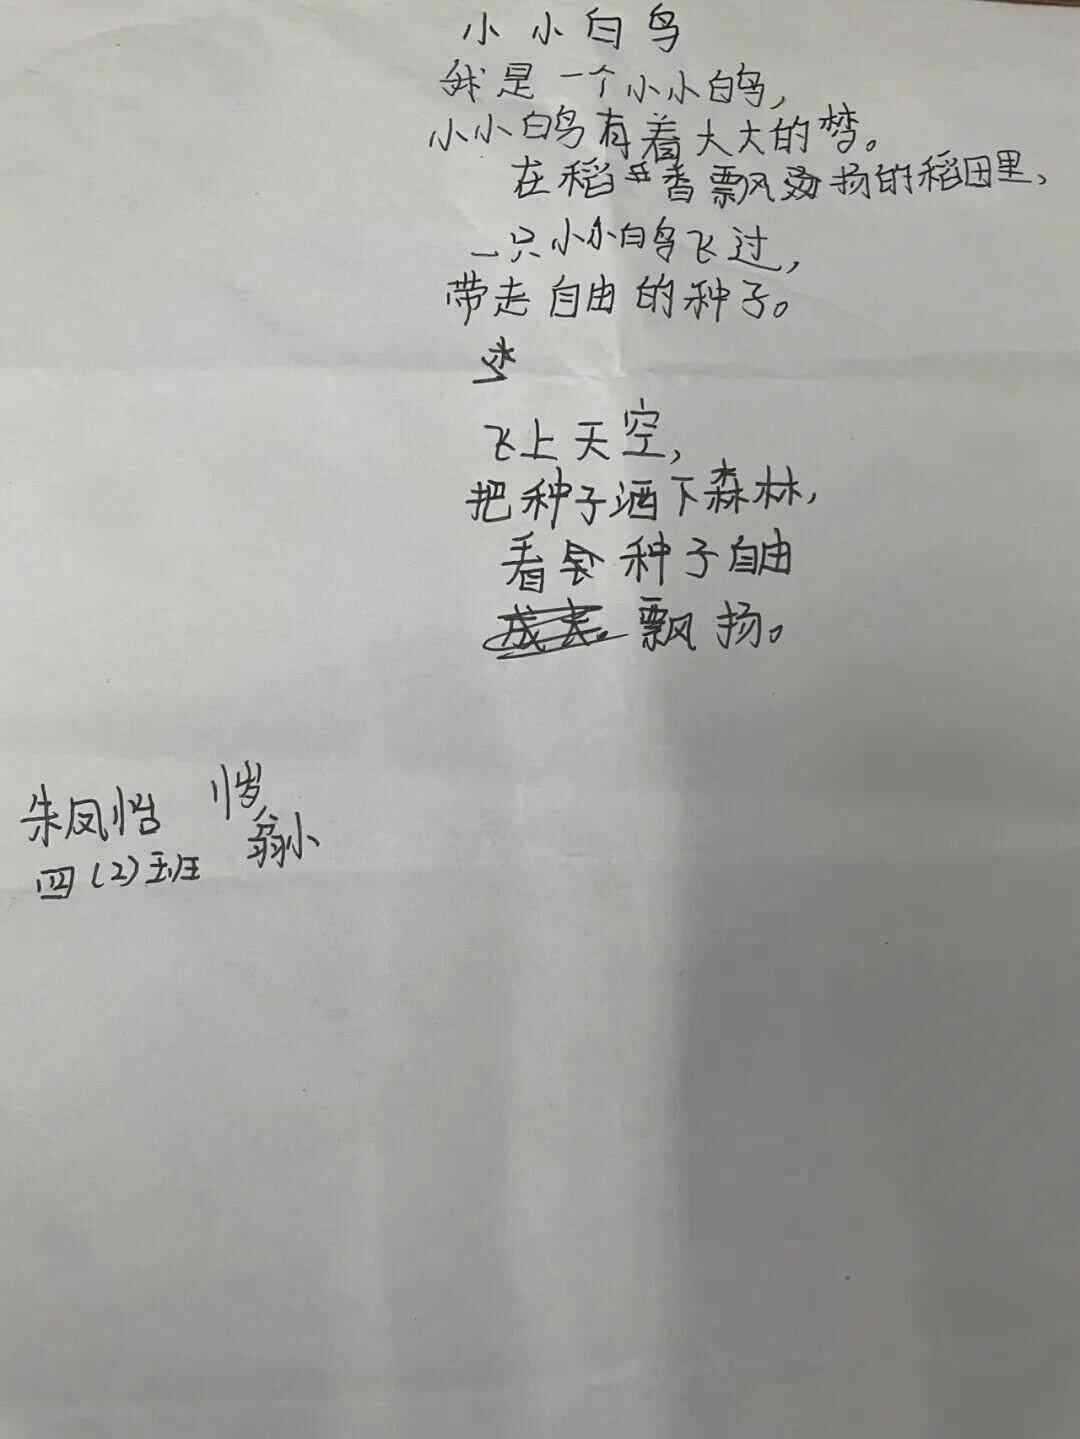 小小白鸟
我是一个小小白鸟，
小小白鸟有着大大的梦。
在稻香飘扬的稻田里、
一只小小白鸟飞过，
带走自由的种子。
飞上天空，
把种子洒下森林，
看种子自由
飘扬。
朱凤怡 11岁
四(2)班 翁小